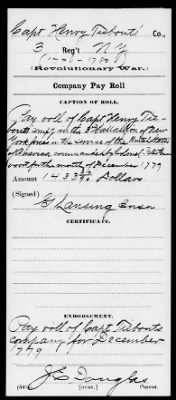 Capt Henry Tiebout Co.,
3 Reg't N. Y.
(Revolutionary War.)
Company Pay Roll
CAPTION OF ROLL.
Pay roll of Capt Henry Tie-
bouts comp'y in the 3d Battalion of New
York forces in the service of the United States
of America commanded by Colonel
for the month of December 1779
Amount 1433 Dollars
(Signed)
G Lansing Ensn
CERTIFICATE.
ENDORSEMENT.
Pay roll of Capt Tiebouts
company for December
1779
J. E. Douglas
(545) [OVER.] Copyist.